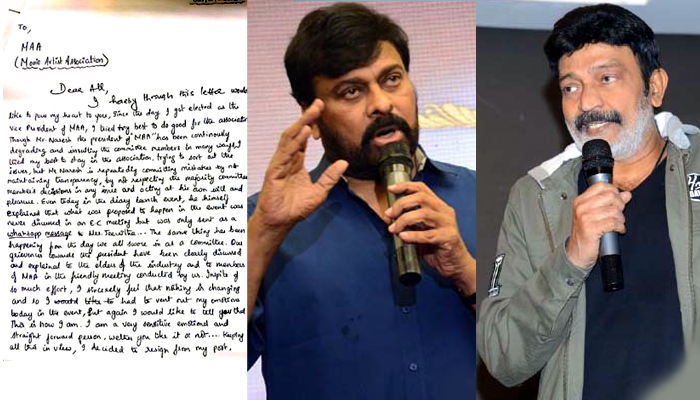 To,
MAA
(Movie Artist Association)
Dear All,
I hereby through this letter would
like to pour my heart to you, since the day I got elected as the
Vice President of MAA, I tried my best to do good for the association
Though Mr Naresh the president of MAA has been continuously
degrading and insulting the committee members in many ways I
tried my best to stay in the association, trying to sort out the
issues, but Mr Naresh is repeatedly committing mistakes by not
maintaining transparency, by not respecting the majority committee
member's decisions in any issue and acting at his own will and
pleasure. Even today in the diary launch event, he himself
explained that what was proposed to happen in the event was
never discussed in an E.C meeting but was only sent as a
whatsapp message to Mrs Jeevitha... The same thing has been
happening from the day we all swore in as a committee. Our
grievances towards the president have been clearly discussed
and explained to the elders of the industry and to members
of MAA in the friendly meeting conducted by us. Inspite of
so much effort, I sincerely feel that nothing is changing
and so I would like to had to vent out my emotions
today in the event, but again I would like to tell you that
This is how I am. I am a very sensitive emotional and
straight forward person, you like it or not.... Keeping
all this in view, I decided to resign from my post.